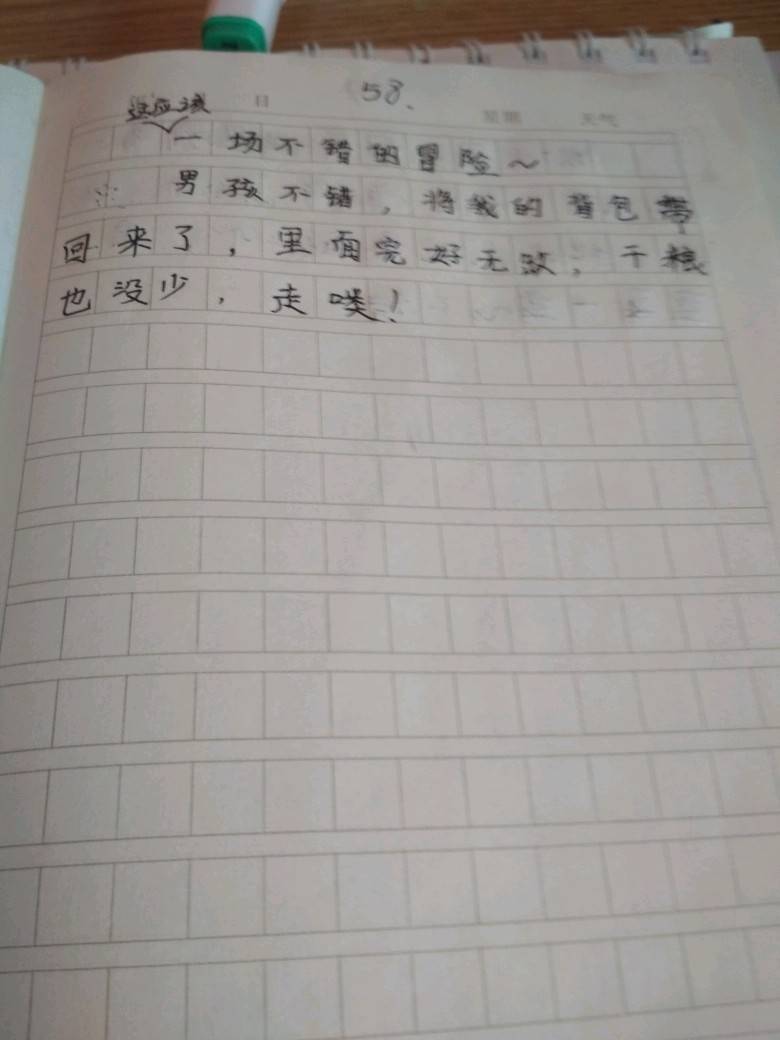 58.
日 星期 天气
这应该
一场不错的冒险~
男孩不错，将我的背包带
回来了，里面完好无效，干粮
也没少，走喽！